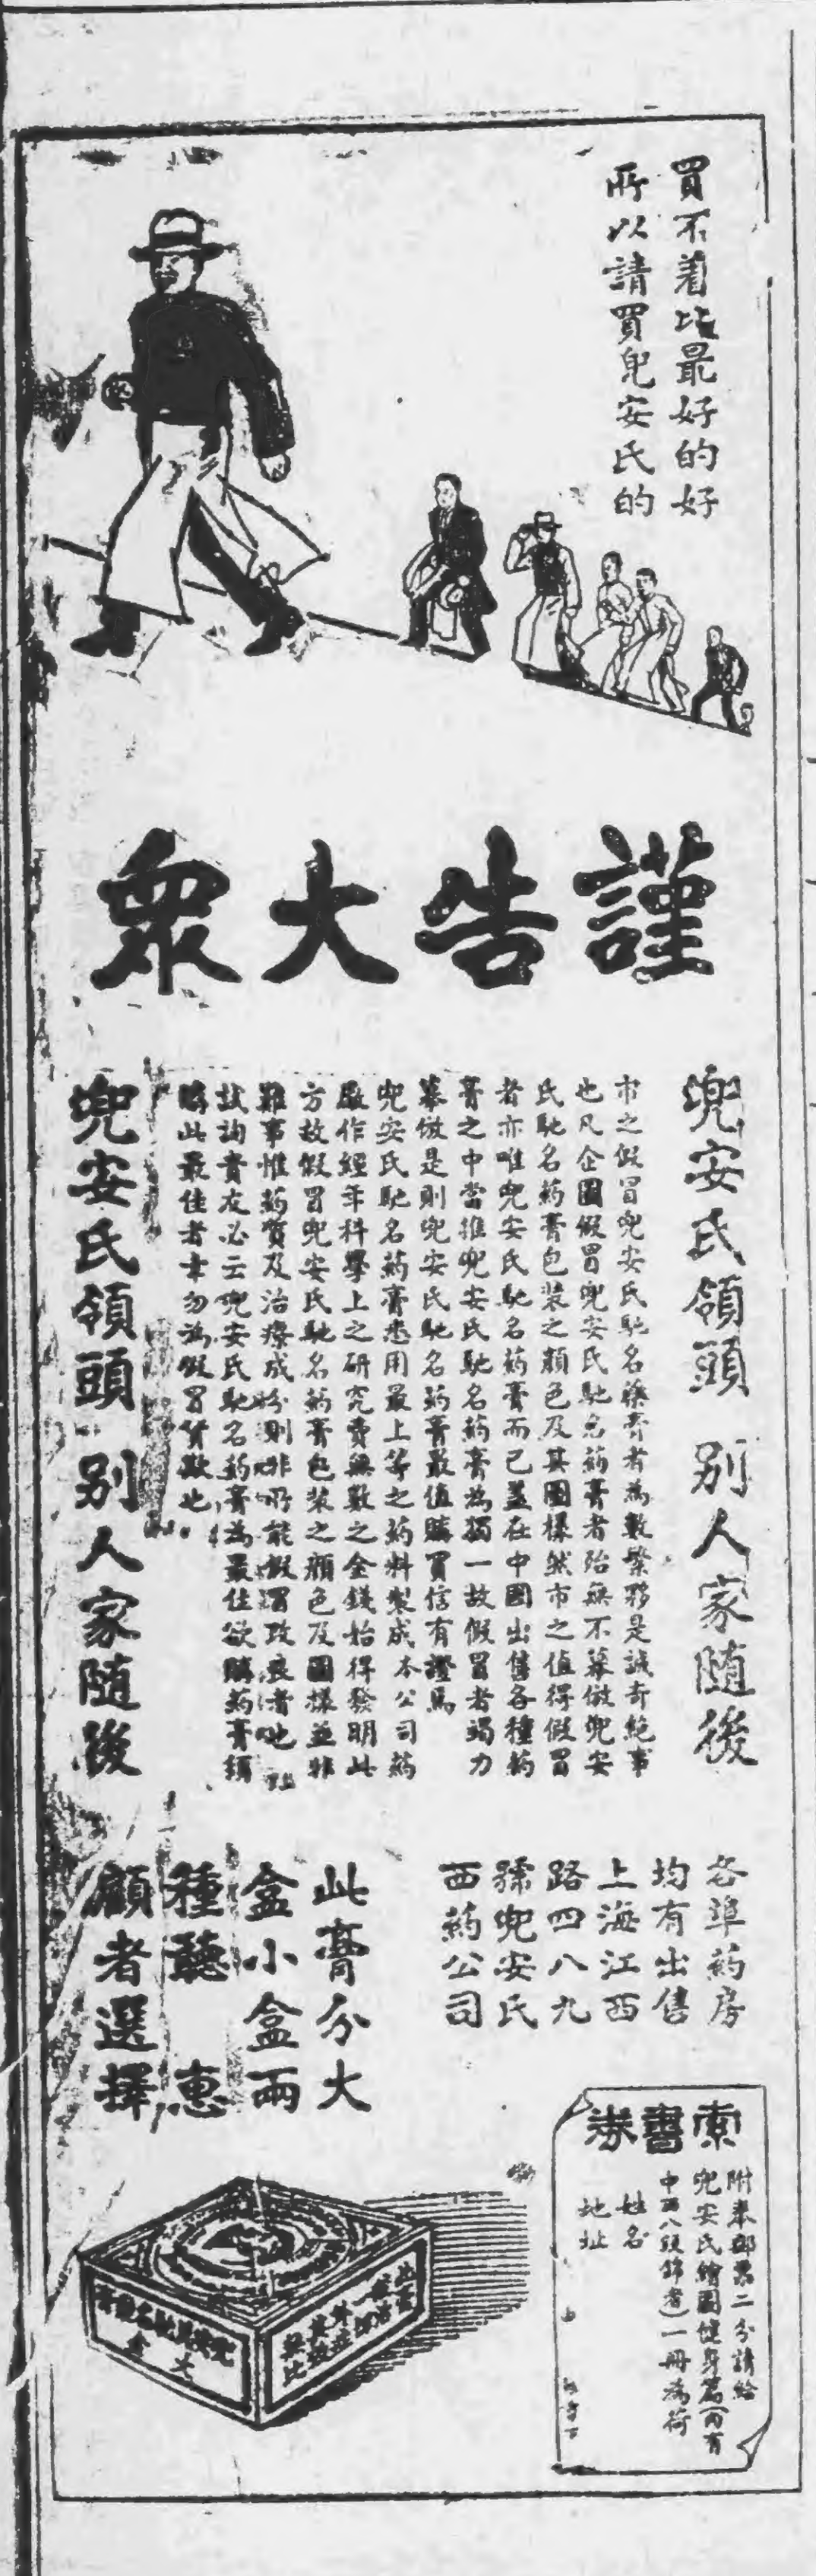 買不着比最好的好
所以請買兜安氏的
謹告大眾
兜安氏領頭 別人家随後
市之假冒兜安氏馳名藥膏者為數繁夥是誠奇絕事
也凡企圖假冒兜安氏馳名葯膏者殆無不摹倣兜安
氏馳名葯膏包裝之顏色及其圖樣然市之值得假冒
者亦唯兜安氏馳名葯膏而已蓋在中國出售各種葯
膏之中當推兜安氏馳名葯膏為獨一故假冒者竭力
摹倣是則兜安氏馳名葯膏最值購買信有證焉
兜安氏馳名葯膏悉用最上等之葯料製成本公司葯
廠作經年科學上之研究費無數之金錢始得發明此
方故假冒兜安氏馳名葯膏包裝之顏色及圖樣並非
難事惟葯質及治療成分則非所能假冒改良者也
試詢貴友必云兜安氏馳名葯膏為最佳欲購葯膏須
購此最佳者幸勿為假冒貨欺也
兜安氏領頭 別人家随後
各埠葯房
均有出售
上海江西
路四八九
號兜安氏
西葯公司
此膏分大
盒小盒兩
種聽 惠
顧者選擇
索書券
附奉郵票二分請給
兜安氏繪圖健身篇(內有
中西八段錦者)一冊為荷
姓名
地址
兜安氏馳名葯膏
大盒